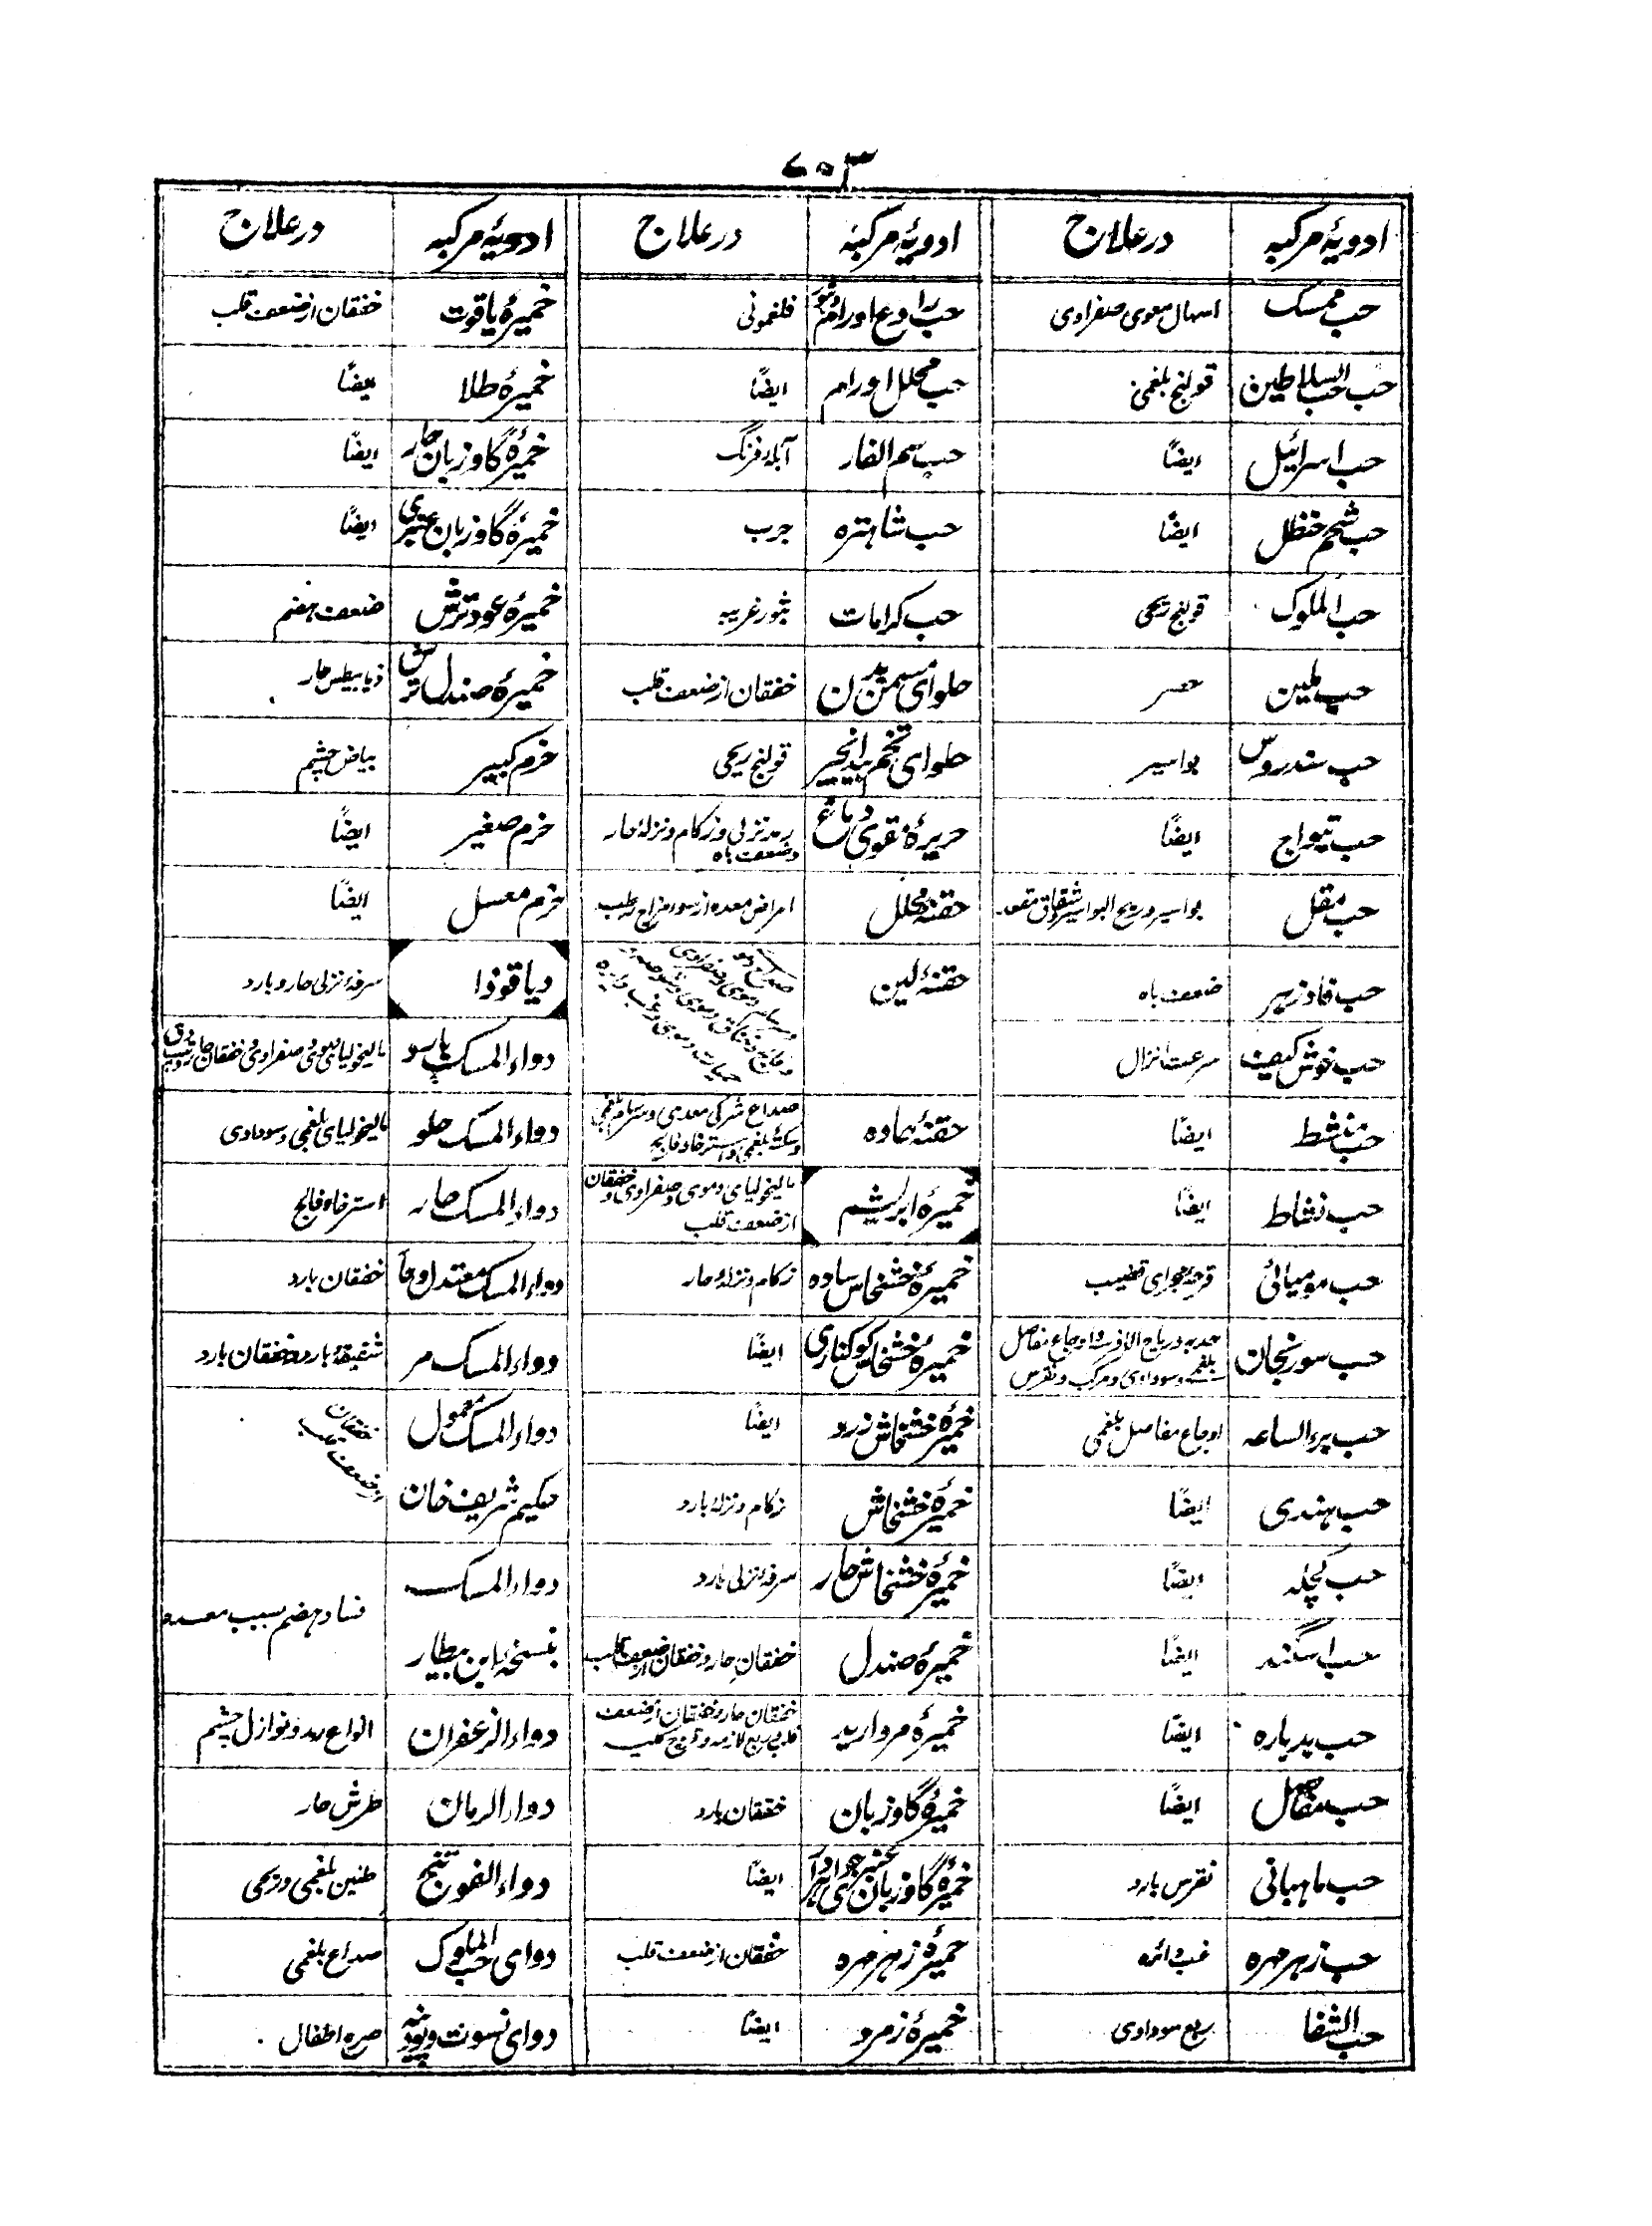 ادویۂ مرکبہ | در علاج | ادویۂ مرکبہ | در علاج | ادویۂ مرکبہ | در علاج
حب ممسک | اسہال معوی صفراوی | حب رادع اورام | فلغمونی | خمیرۂ یاقوت | خفقان از ضعف قلب
حب حب السلاطین | قولنج بلغمی | حب محلل اورام | ایضًا | خمیرۂ طلا | ایضًا
حب اسرائیل | ایضًا | حب سم الفار | آبلہ فرنگ | خمیرۂ گاوزبان حار | ایضًا
حب شحم حنظل | ایضًا | حب شاہترہ | جرب | خمیرۂ گاوزبان عنبری | ایضًا
حب الملوک | قولنج ریحی | حب کرامات | بثور غریبہ | خمیرۂ عود ترش | ضعف ہضم
حب ملین | حصر | حلوای مسمن بدن | خفقان از ضعف قلب | خمیرۂ صندل ترش | ذیابیطس حار
حب سندروس | بواسیر | حلوای تخم بیدانجیر | قولنج ریحی | خرم کبیر | بیاض چشم
حب تیواج | ایضًا | حریرۂ مقوی دماغ | رمد نزلی و زکام و نزلۂ حار و ضعف باہ | خرم صغیر | ایضًا
حب مقل | بواسیر و ریح البواسیر و شقاق مقعد | حقنۂ محلل | امراض معدہ از سوء مزاج رطب | خرم معسل | ایضًا
حب فادزہر | ضعف باہ | حقنۂ لین | دیاقوذا | سرفۂ نزلی حار و بارد
حب خوش کیفیت | سرعت انزال | دواء المسک بارد | مالیخولیای دموی و صفراوی و خفقان حار
حب منشط | ایضًا | حقنۂ حادہ | صداع شرکی معدی و سرسام بلغمی و سکتۂ بلغمی و استرخا و فالج | دواء المسک حلو | مالیخولیای بلغمی و سوداوی
حب نشاط | ایضًا | خمیرۂ ابریشم | مالیخولیای دموی و صفراوی و خفقان از ضعف قلب | دواء المسک حار | استرخا و فالج
حب مومیائی | قرحۂ مجرای قضیب | خمیرۂ خشخاش سادہ | زکام و نزلۂ حار | دواء المسک معتدل | خفقان بارد
حب سورنجان | حدبہ و ریاح الافرسہ و اوجاع مفاصل بلغمی و سوداوی و مرکب و نقرس | خمیرۂ خشخاش کوکناری | ایضًا | دواء المسک مر | شقیقۂ بارد و خفقان بارد
حب برء الساعہ | اوجاع مفاصل بلغمی | خمیرۂ خشخاش زرد | ایضًا | دواء المسک معمول | خفقان
حب ہندی | ایضًا | خمیرۂ خشخاش | زکام و نزلۂ بارد | حکیم شریف خان | از ضعف قلب
حب کچلہ | ایضًا | خمیرۂ خشخاش حار | سرفۂ نزلی بارد | دواء المسک | فساد ہضم بسبب معدہ
حب اسگند | ایضًا | خمیرۂ صندل | خفقان حار و خفقان از ضعف قلب | بنسخۂ ابن بیطار
حب بدہارہ | ایضًا | خمیرۂ مروارید | خفقان حار و خفقان از ضعف قلب | دواء الزعفران | انواع رمد و نوازل چشم
حب مفاصل | ایضًا | خمیرۂ گاوزبان | خفقان بارد | دواء الرمان | طرش حار
حب ماہیانی | نقرس بارد | خمیرۂ گاوزبان عنبری جواہردار | ایضًا | دواء الفوتنج | طنین بلغمی و ریحی
حب زہر مہرہ | غب دائرہ | خمیرۂ زہر مہرہ | خفقان از ضعف قلب | دوای حب الملوک | صداع بلغمی
حب الشفا | ربع سوداوی | خمیرۂ زمرد | ایضًا | دوای نسوت و پودینہ | صرع اطفال